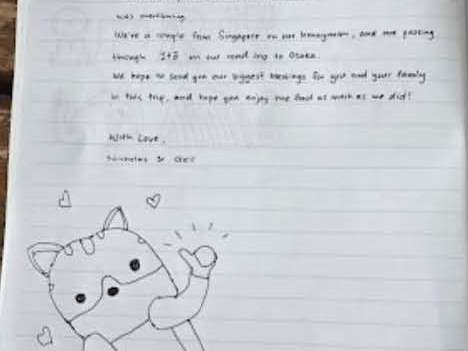 was overflowing.
We're a couple from Singapore on our honeymoon, and are passing
through on our road trip to Osaka.
We hope to send you our biggest blessings for you and your family
in this trip, and hope you enjoy the food as much as we did!
With Love,
Nicholas &